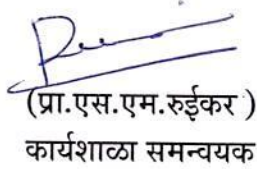 (प्रा.एस.एम.रुईकर )
कार्यशाळा समन्वयक